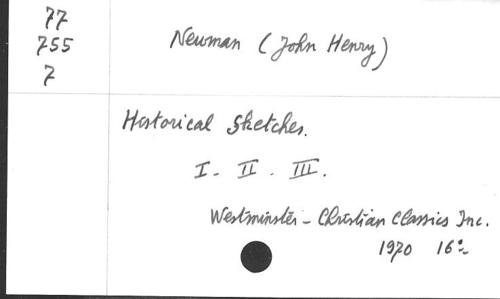 77
755
7
Newman (John Henry)
Historical Sketches.
I - II - III.
Westminster - Christian Classics Inc.
1970 16º